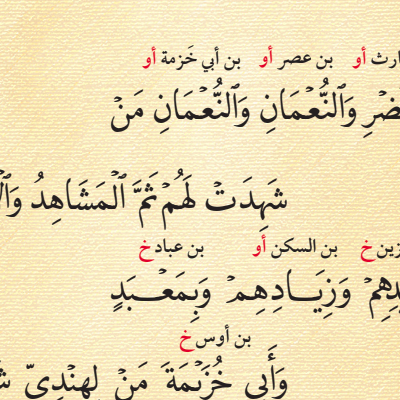 أو بن عصر أو بن أبي خَزمة أو
وَٱلنُّعْمَانِ وَٱلنُّعْمَانِ مَنْ
شَهِدَتْ لَهُمْ ثَمَّ ٱلْمَشَاهِدُ
خ بن السكن أو بن عباد خ
وَزِيَــادِهِمْ وَبِمَعْــبَدٍ
بن أوس خ
وَأَبِي خُزَيْمَةَ مَنْ لِهِنْدِيِّ